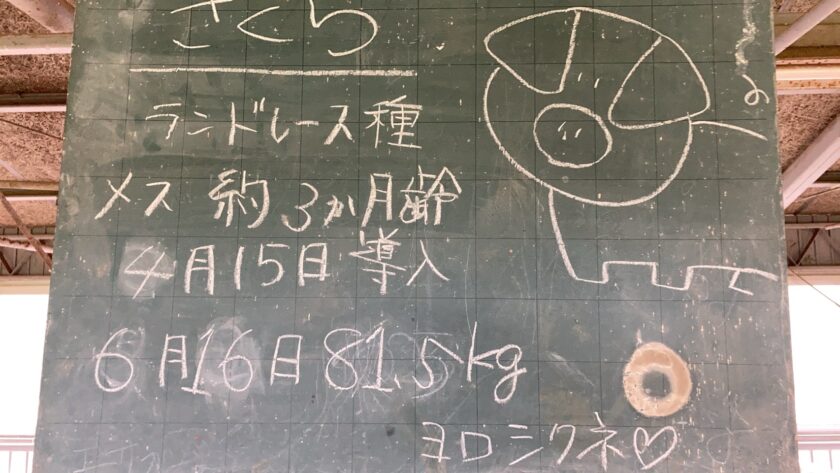 さくら
ランドレース種
メス 約3か月齢
4月15日導入
6月16日 81.5kg
ヨロシクネ♡